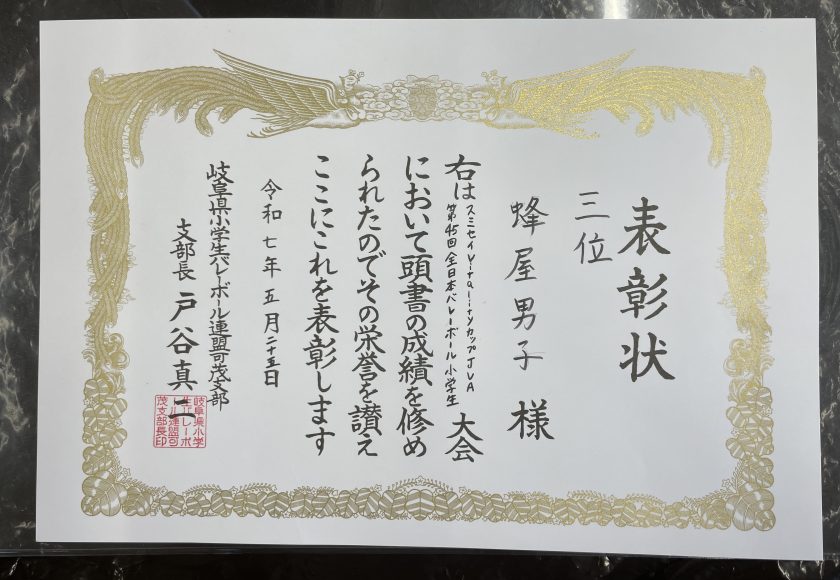 表彰状
三位
蜂屋男子 様
右は スミセイVitalityカップJVA
第45回全日本バレーボール小学生 大会
において頭書の成績を修め
られたのでその栄誉を讃え
ここにこれを表彰します
令和七年五月二十五日
岐阜県小学生バレーボール連盟可茂支部
支部長 戸谷真二
岐阜県小学
生バレーボ
ール連盟可
茂支部長印